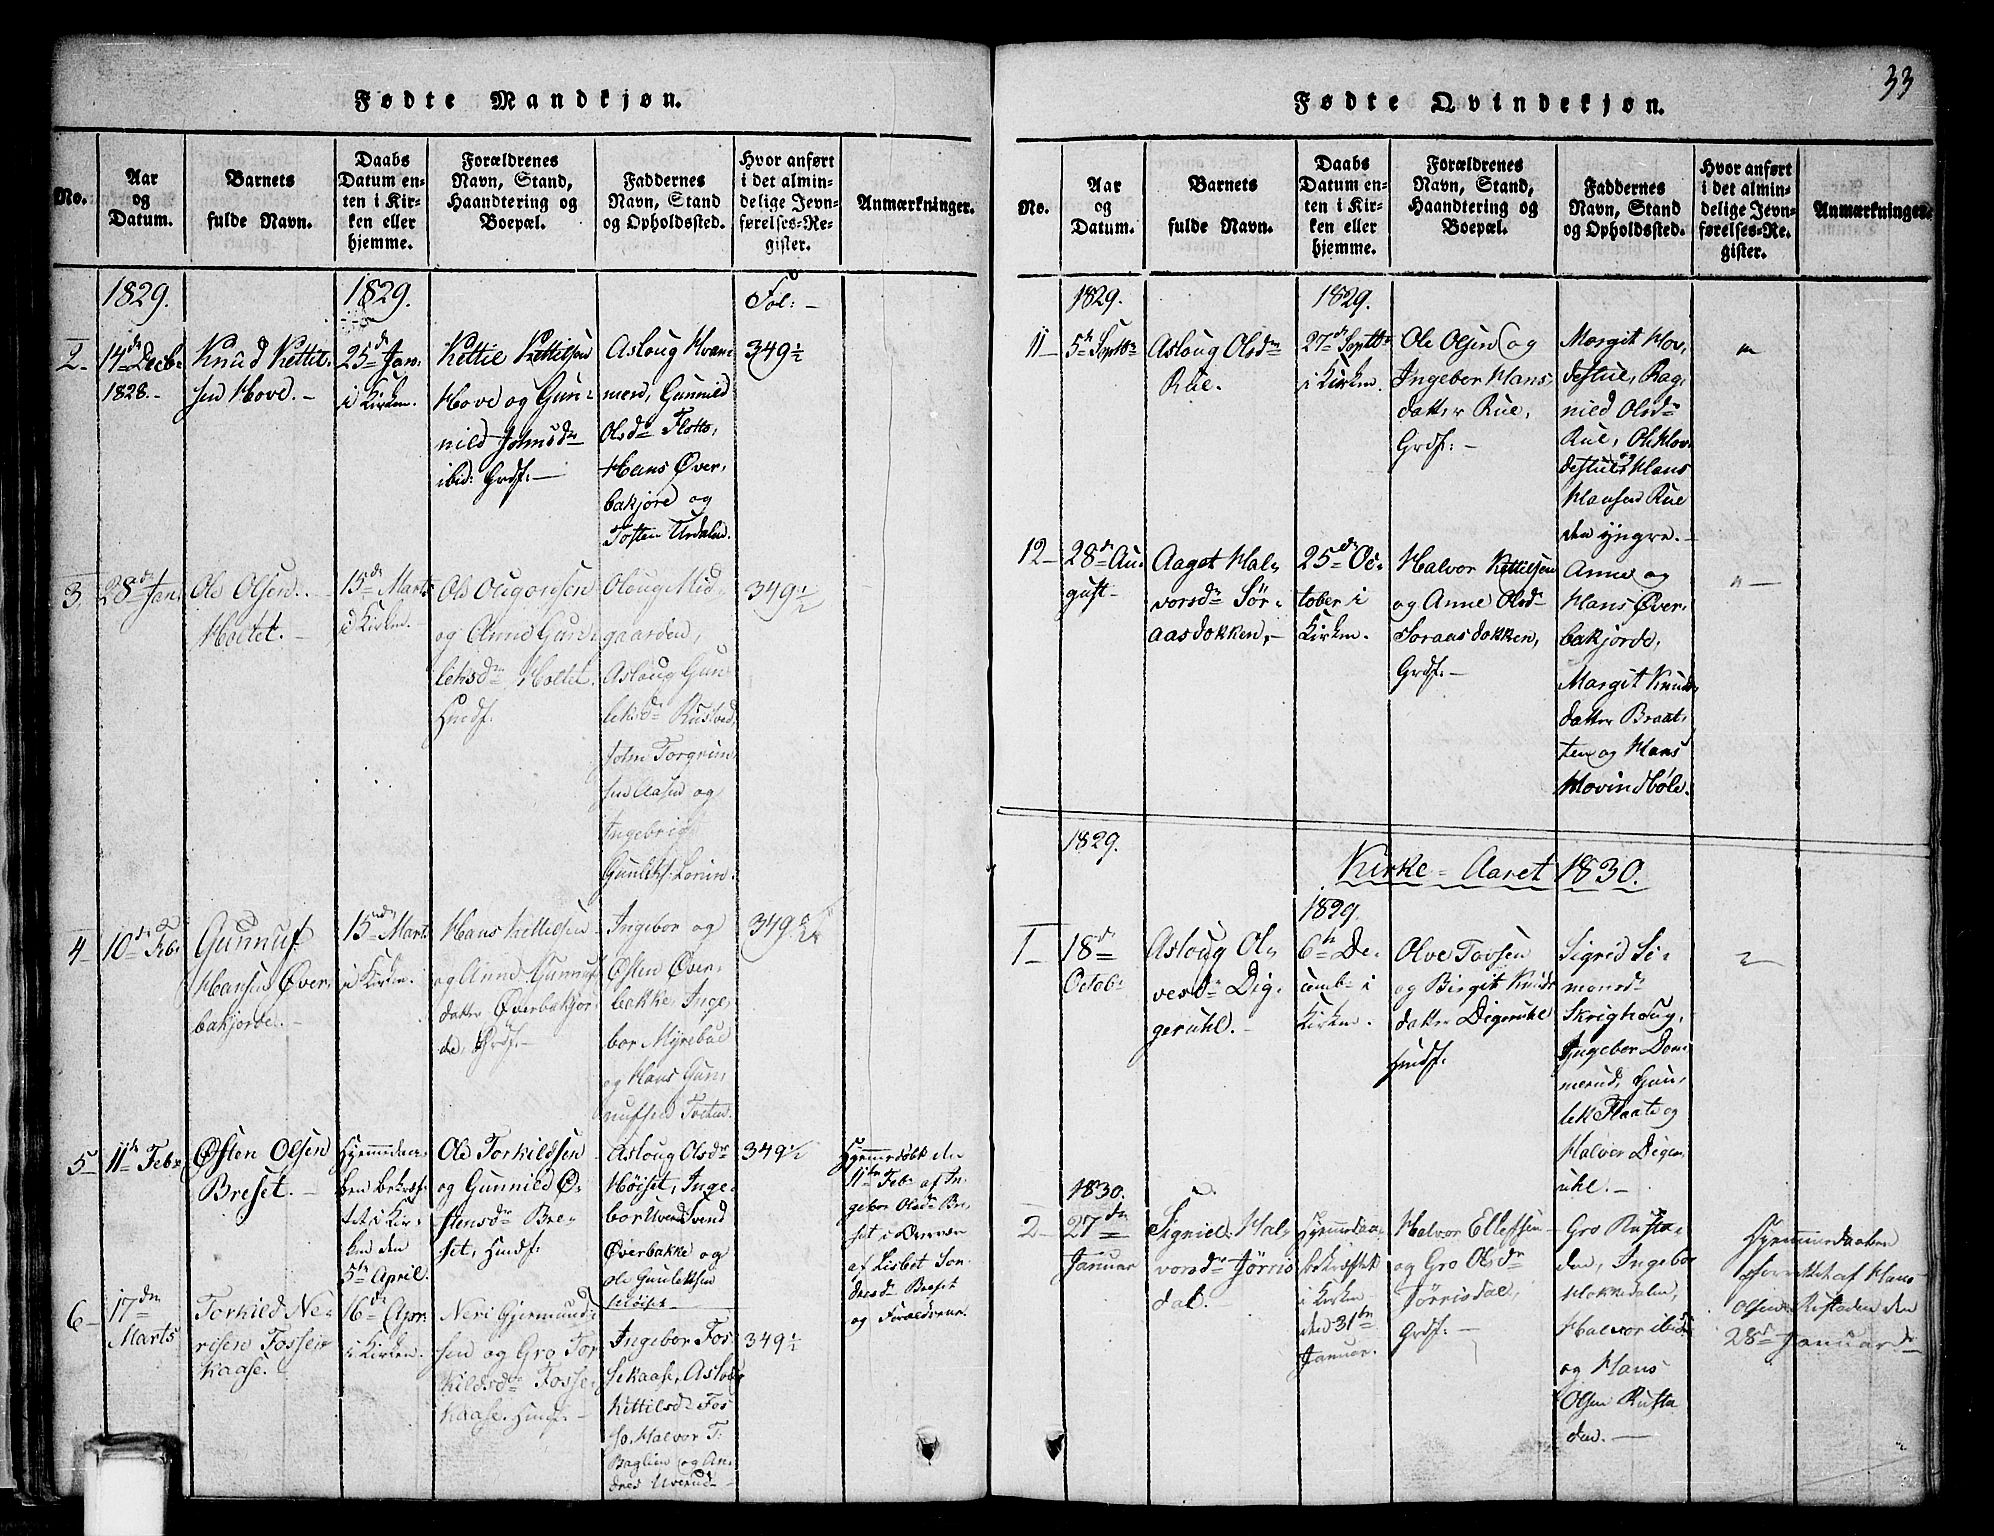 Fødte Mandkjøn.
No.
Aar
og
Datum.
Barnets
fulde Navn.
Daabs
Datum en-
ten i Kir-
ken eller
hjemme.
Forældrenes
Navn, Stand,
Haandtering og
Boepæl.
Faddernes
Navn, Stand
og Opholdssted.
Hvor anført
i det almin-
delige Jevn-
førelses-Re-
gister.
Anmærkninger.
1829.
1829.
Fol: -
2-
14de Decbr
1828.-
Knud Kettil-
sen Hove.-
25de Jan:
i Kirken.
Kettil Kettilsen
Hove og Gun-
nild Johnsdr
ibid: Grdf:-
Asloug Hvam-
men, Gunnild
Olsdr Flotto,
Hans Øver-
bakjore og
Tosten Urdalen.
349½
3.
28de Jan:
Ole Olsen
Holtet.-
15de Marts
i Kirken.
Ole
og Anne Gun-
leksdr Holtet
Hmdf.
Oloug Mid-
gaarden,
Asloug Gun-
leksdr Rustved
John Torgrim-
sen Aasen og
Ingebrigt
Gunleks:
349½
4-
10de Feb:
Gunnuf
Hansen Øver-
bakjorde.-
15de Mart.
i Kirken.
Hans Kettilsen
og Anne Gunnufs
datter Øverbakjor-
de, Grdf.-
Ingebor og
Østen Øver-
bekke, Inge-
bor Myrebøe
og Hans Gun-
nufsen Toften.
349½
5-
11te Febr
Østen Olsen
Breset.-
Hjemmedaa-
ben bekræf-
tet i Kir-
ken den
5te April.
Ole Torkildsen
og Gunnild Ø-
stensdr Bre-
set, Hmdf:
Asloug Olsdr
Høiset, Inge-
bor
Øverbakke og
Ole Gunleksen
Høiset
349½
Hjemmedøbt den
11te Feb: af In-
gebor Olsdr Bre-
set i Overvær
af Lisbet Ton-
dresdr Breset
og Forældrene.
6-
17de
Marts
Torkild Ne-
risen Fossen
Kaase.
16de Apr:
i Kirken.
Neri Gjermund-
sen og Gro Tor-
kildsdr Fosse-
Kaase.
Ingebor Fos-
sekaase, Asloug
Kettilsdr Fos-
so, Halvor T.
Baglien og An-
dres Uverud-
349½
33
Fødte Qvindekjøn.
No.
Aar
og
Datum.
Barnets
fulde Navn.
Daabs
Datum en-
ten i Kir-
ken eller
hjemme.
Forældrenes
Navn, Stand,
Haandtering og
Boepæl.
Faddernes
Navn, Stand
og Opholdssted.
Hvor anført
i det almin-
delige Jevn-
førelses-Re-
gister.
Anmærkninger.
1829.
1829.
11-
5te Septbr
Asloug Olsdr
Rue.
27de Septbr
i Kirken.
Ole Olsen og
Ingebor Hans-
datter Rue,
Grdf:-
Margit Hov-
destul, Rag-
nild Olsdr
Rue, Ole Hov-
destul og Hans
Hansen Rue
den yngre.-
"
12-
28de Au-
gust-
Aaget Hal-
vorsdr Sør-
aasdokken,-
25de Oc-
tober i
Kirken.
Halvor Kettilsen
og Anne Olsdr
Soraasdokken,
Grdf:-
Anne og
Hans Øver-
bakjorde,
Margit Knuds
datter Braat-
ten og Hans
Hovindbøle.
" -
1829.
Kirke-Aaret 1830.
1829.
1-
18de
Octobr
Asloug Ol-
vesdr Dig-
geruhl.-
6te De-
cembr i
Kirken.
Olve Tovsen
og Birgit Knuds
datter Digeruhl
Hmdf:
Sigrid Si-
monsdr
Skrighoug,
Ingebor Dom-
merud, Gun-
lek Flaate og
Halvor Diger-
uhl.-
"
1830.
2-
27de
Januar
Signild Hal-
vorsdr Jørris-
dal.-
Hjemmedaa-
bekræftet
i Kirken
den 31te
Januar.
Halvor Ellefsen
og Gro Olsdr
Jørrisdal,
Grdf:-
Gro Rusta-
den, Ingebor
Hokkedalen,
Halvor ibid:
og Hans
Olsen Rusta-
den.-
Hjemmedaaben
forrettet af Hans
Olsen Rustaden den
28de Januar